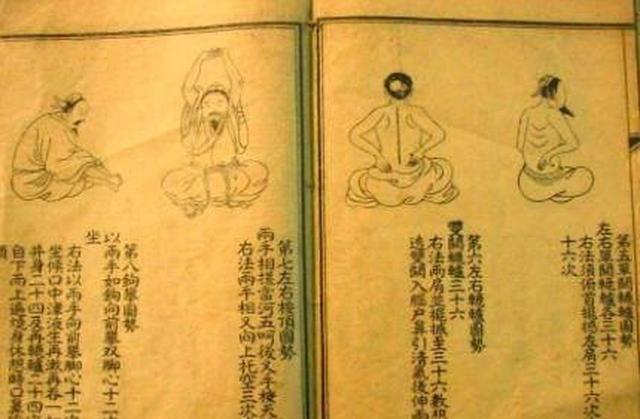 第五單關轆轤圖勢
左右單關轆轤各三十六
右法須俯首擺撼左肩三十六次
十六次
第六左右轆轤圖勢
雙關轆轤三十六
右法兩肩並擺撼至三十六數想
透雙關入腦戶鼻引清氣後伸兩
第七左右按頂圖勢
兩手相搓當呵五呵後叉手按天
右法兩手相叉向上托空三次
第八鉤攀圖勢
以兩手如鉤向前攀双脚心十二
坐
右法以兩手向前攀脚心十二
坐候口中津液生再漱再吞一
并身二十四及再轆轤二十四
自下而上遍燒身体想時口鼻